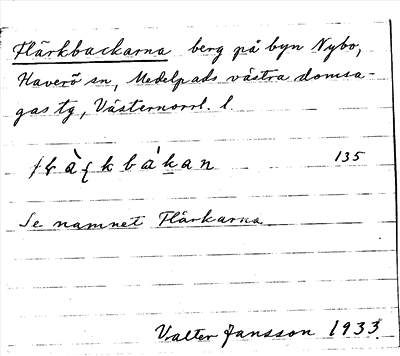 Flärkbackarna berg på byn Nybo,
Haverö sn, Medelpads västra domsa-
gas tg, Västernorrl. l
135
Se namnet Flärkarna
Valter Jansson 1933.